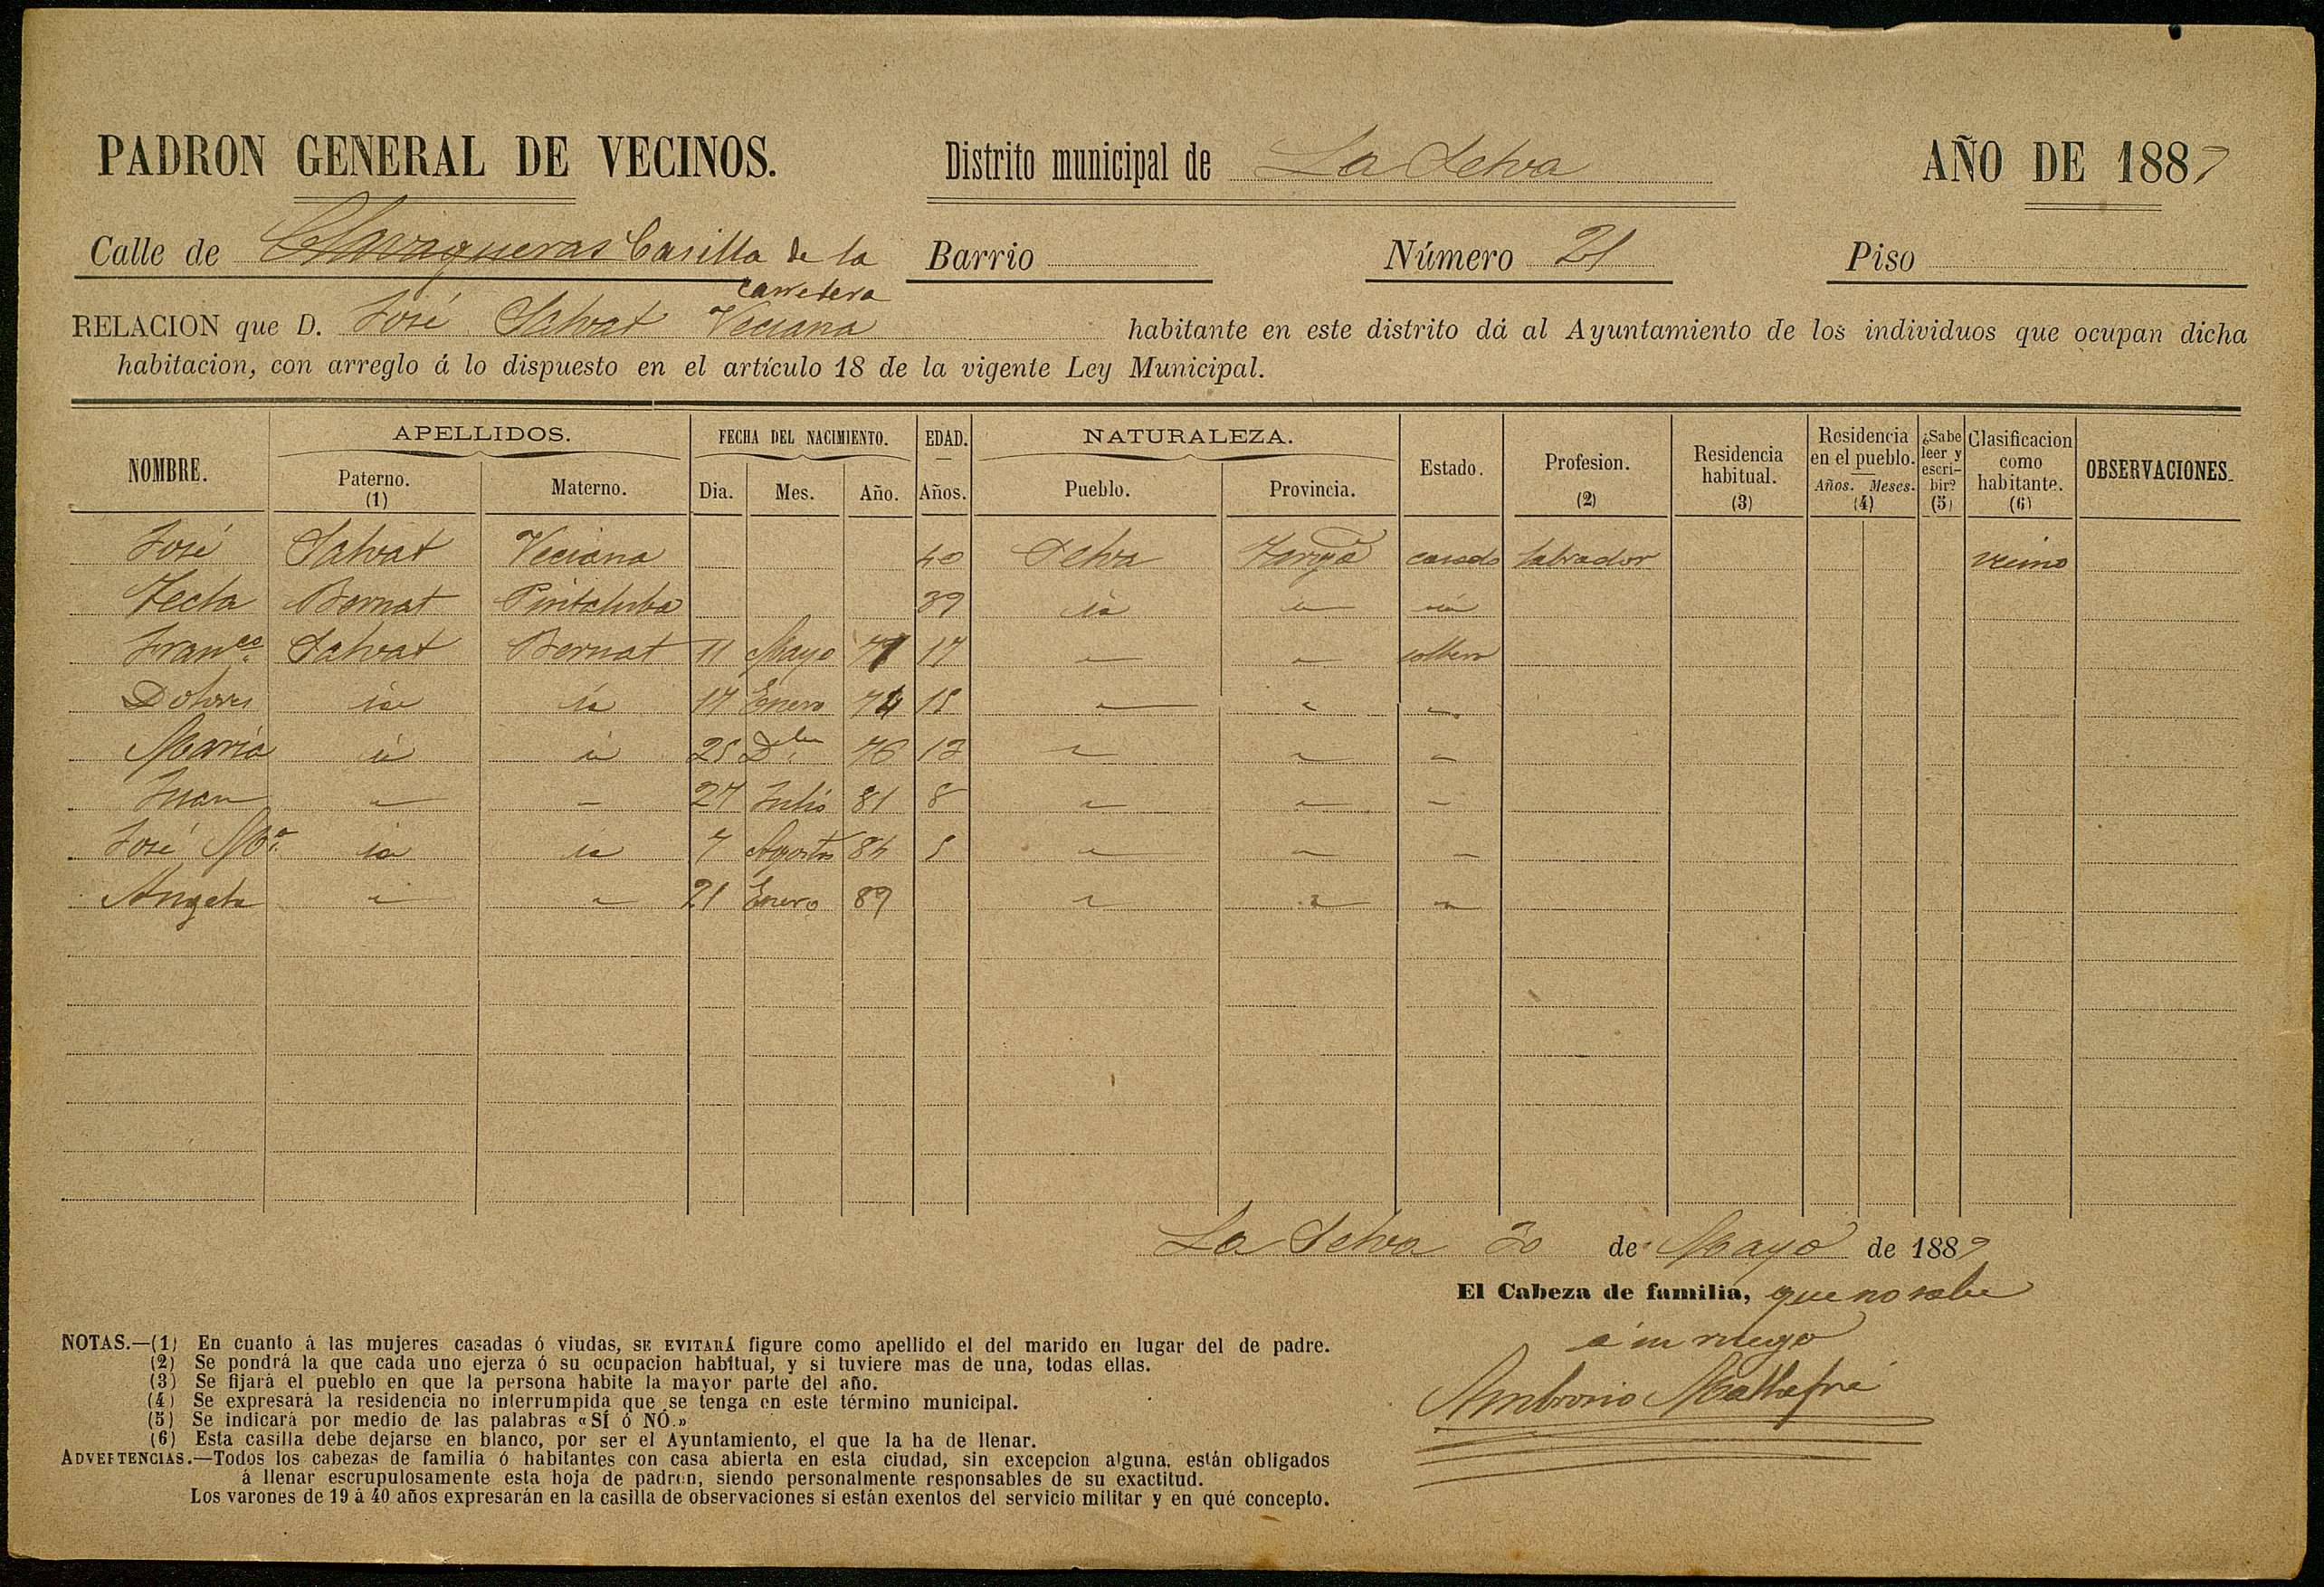 PADRON GENERAL DE VECINOS. Distrito municipal de La Selva AÑO DE 1889
Calle de Casilla de la carretera Barrio Número 21 Piso
RELACION que D. José Salvat Veciana habitante en este distrito dá al Ayuntamiento de los individuos que ocupan dicha
habitacion, con arreglo á lo dispuesto en el artículo 18 de la vigente Ley Municipal.
NOMBRE. APELLIDOS. Paterno. (1) Materno. FECHA DEL NACIMIENTO. Dia. Mes. Año. EDAD. Años. NATURALEZA. Pueblo. Provincia. Estado. Profesion. (2) Residencia habitual. (3) Residencia en el pueblo. Años. Meses. (4) ¿Sabe leer y escri-bir? (5) Clasificacion como habitante. (6) OBSERVACIONES.
José Salvat Veciana 40 Selva Tarrgª casado labrador vecino
Tecla Bernat Pintaluba 39 id id id
Franco Salvat Bernat 11 Mayo 71 17 " " soltero
Dolores id id 17 Enero 74 15 " " "
Maria id id 25 Dbre 76 12 " " "
Juan " " 27 Julio 81 8 " " "
José Mª id id 7 Agosto 84 5 " " "
Angela " " 21 Enero 89 " " "
La Selva 20 de Mayo de 1889
El Cabeza de familia, que no sabe
á su ruego
Ambrosio Mallafré
NOTAS.—(1) En cuanto á las mujeres casadas ó viudas, SE EVITARÁ figure como apellido el del marido en lugar del de padre.
(2) Se pondrá la que cada uno ejerza ó su ocupacion habitual, y si tuviere mas de una, todas ellas.
(3) Se fijará el pueblo en que la persona habite la mayor parte del año.
(4) Se expresará la residencia no interrumpida que se tenga en este término municipal.
(5) Se indicará por medio de las palabras «SÍ ó NÓ.»
(6) Esta casilla debe dejarse en blanco, por ser el Ayuntamiento, el que la ha de llenar.
ADVERTENCIAS.—Todos los cabezas de familia ó habitantes con casa abierta en esta ciudad, sin excepcion alguna, están obligados
á llenar escrupulosamente esta hoja de padron, siendo personalmente responsables de su exactitud.
Los varones de 19 á 40 años expresarán en la casilla de observaciones si están exentos del servicio militar y en qué concepto.